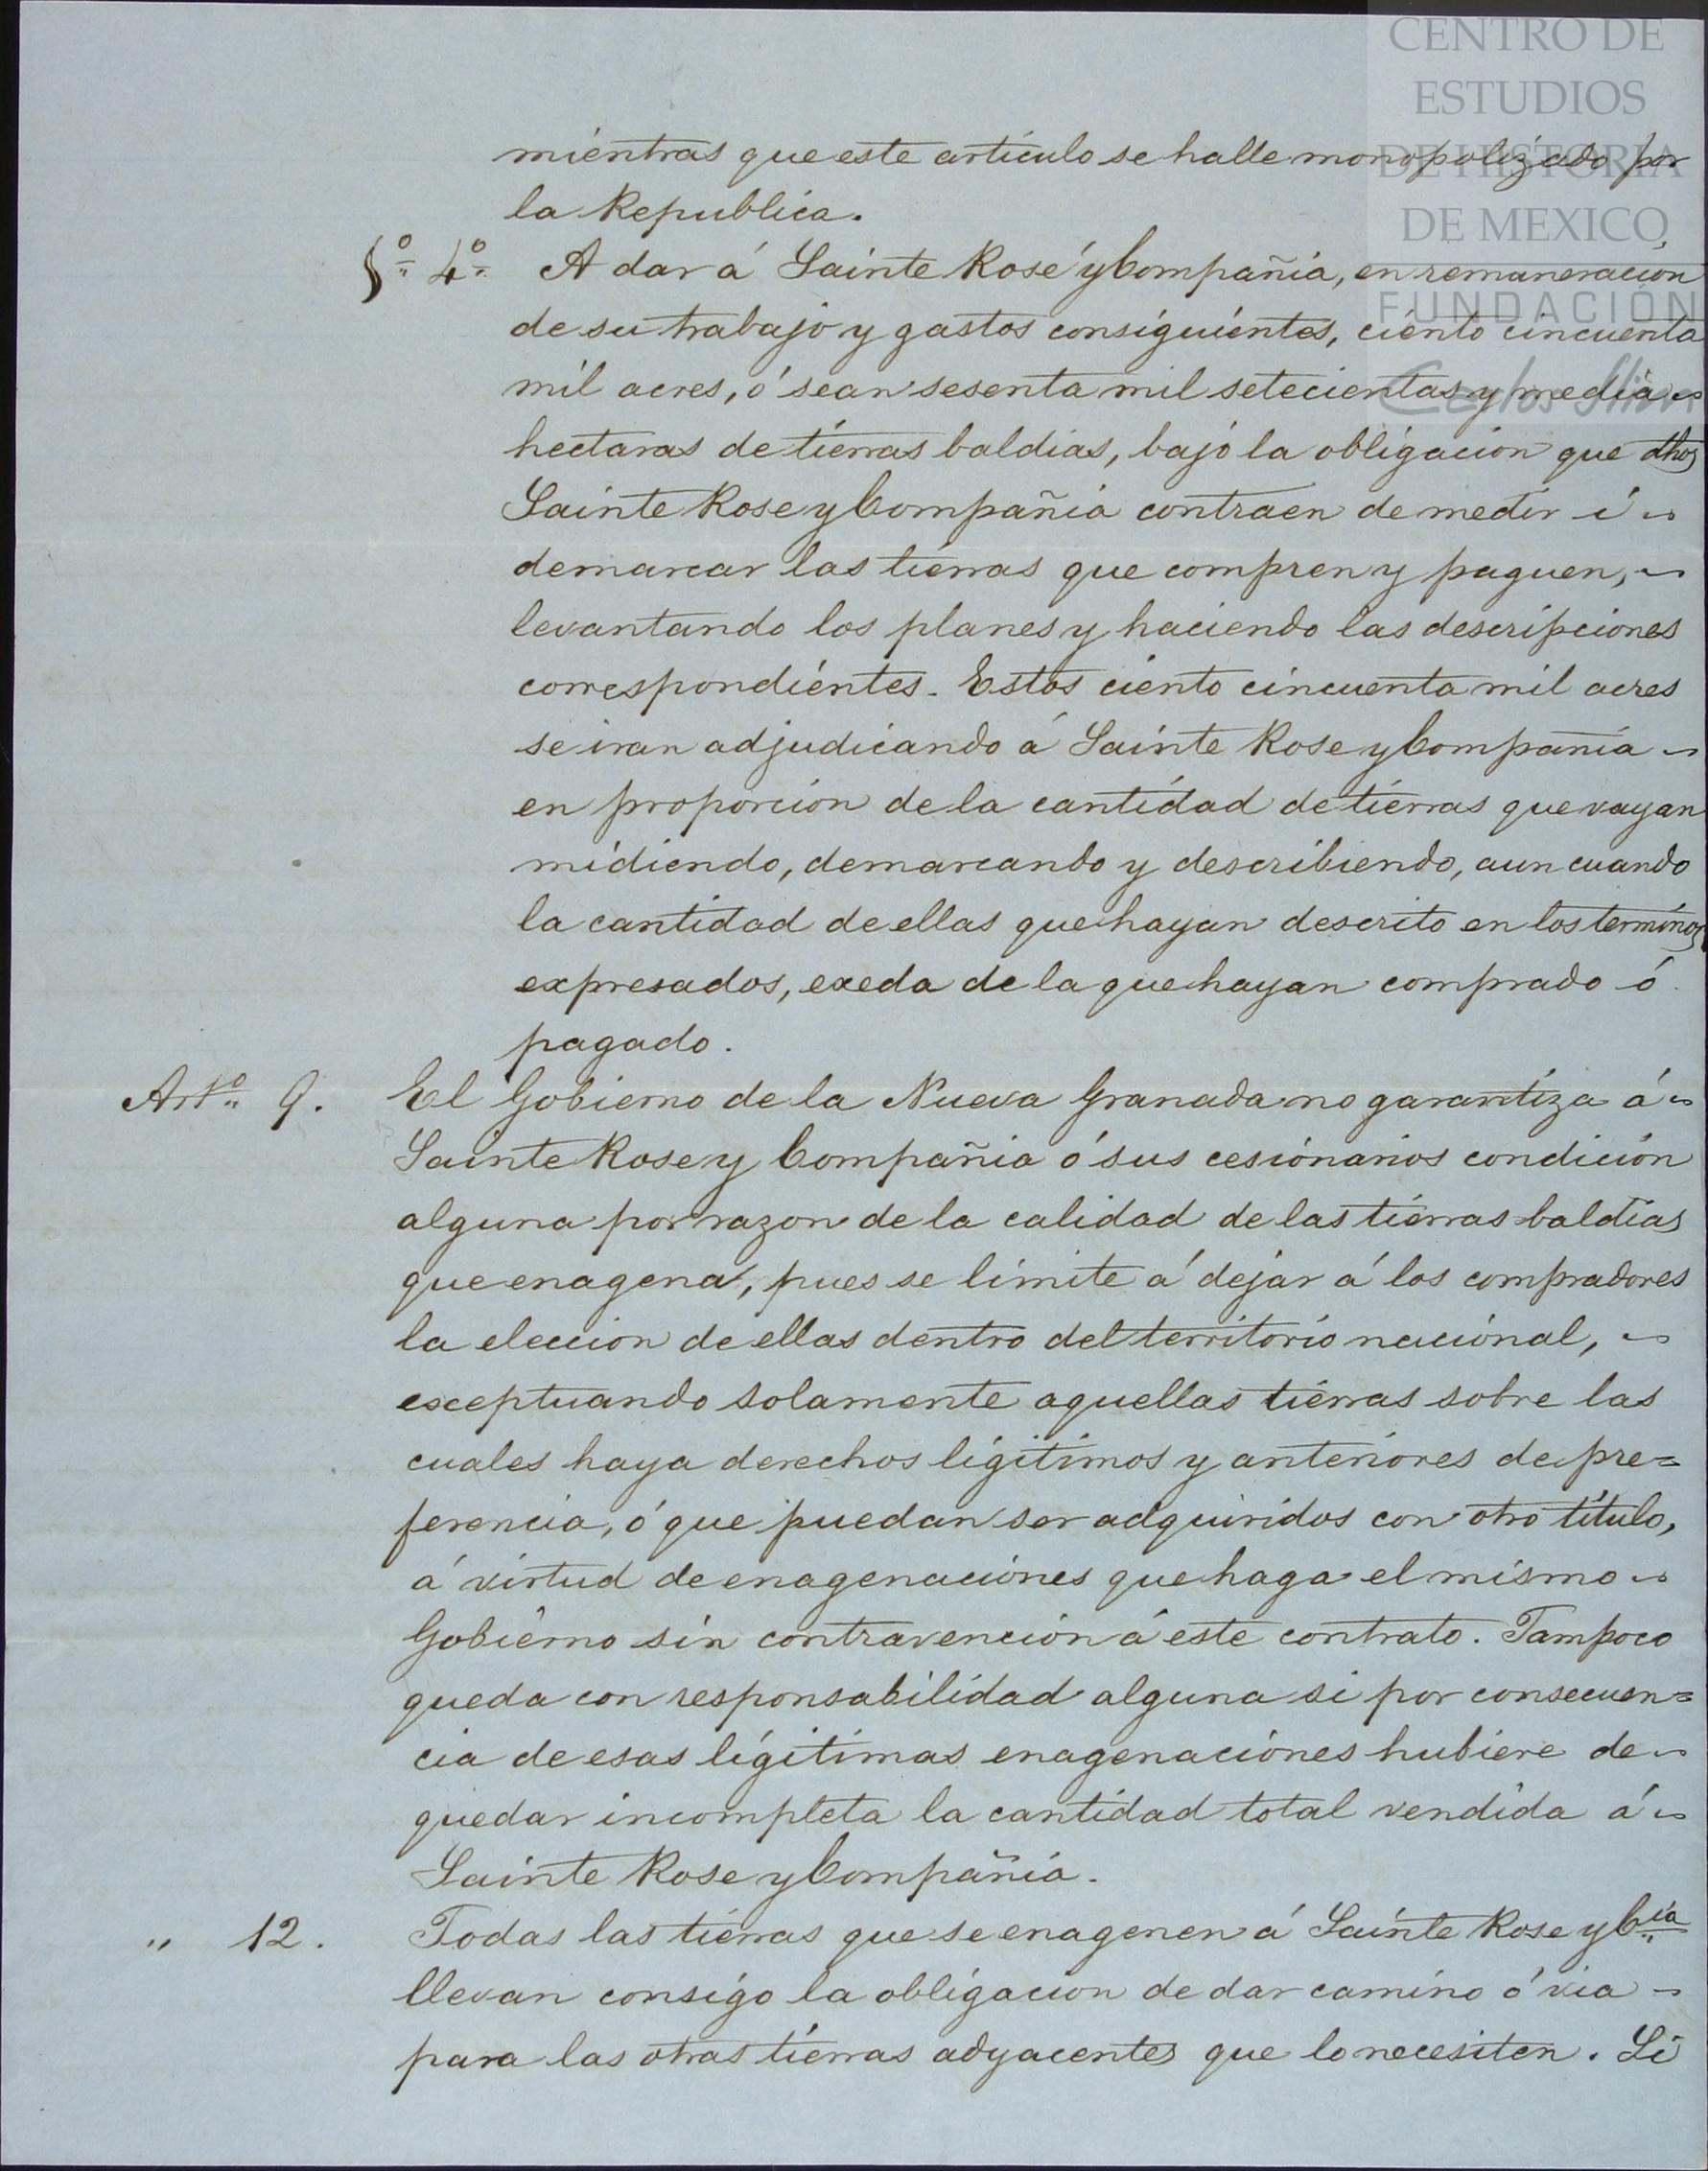 CENTRO DE
ESTUDIOS
DE HISTORIA
DE MEXICO
FUNDACIÓN
Carlos Slim
mientras que este artículo se halle monopolizado por
la Republica.
§º 4º A dar á Sainte Rose y Compañia, en remuneracion
de su trabajo y gastos consiguientes, ciento cincuenta
mil acres, ó sean sesenta mil setecientas y media
hectaras de tierras baldias, bajo la obligacion que dhos
Sainte Rose y Compañia contraen de medir i
demarcar las tierras que compren y paguen,
levantando los planes y haciendo las descripciones
correspondientes. Estos ciento cincuenta mil acres
se iran adjudicando á Sainte Rose y Compañia
en proporcion de la cantidad de tierras que vayan
midiendo, demarcando y describiendo, aun cuando
la cantidad de ellas que hayan descrito en los terminos
expresados, exeda de la que hayan comprado ó
pagado.
Artº 9. El Gobierno de la Nueva Granada no garantiza á
Sainte Rose y Compañia ó sus cesionarios condicion
alguna por razon de la calidad de las tierras baldias
que enagena, pues se limite á dejar á los compradores
la eleccion de ellas dentro del territorio nacional,
exceptuando solamente aquellas tierras sobre las
cuales haya derechos ligitimos y anteriores de pre=
ferencia, ó que puedan ser adquiridos con otro titulo,
á virtud de enagenaciones que haga el mismo
Gobierno sin contravencion á este contrato. Tampoco
queda con responsabilidad alguna si por consecuen=
cia de esas ligitimas enagenaciones hubiere de
quedar incompleta la cantidad total vendida á
Sainte Rose y Compañia.
" 12. Todas las tierras que se enagenen á Sainte Rose y Cia
llevan consigo la obligacion de dar camino ó via
para las otras tierras adyacentes que lo necesiten. Si